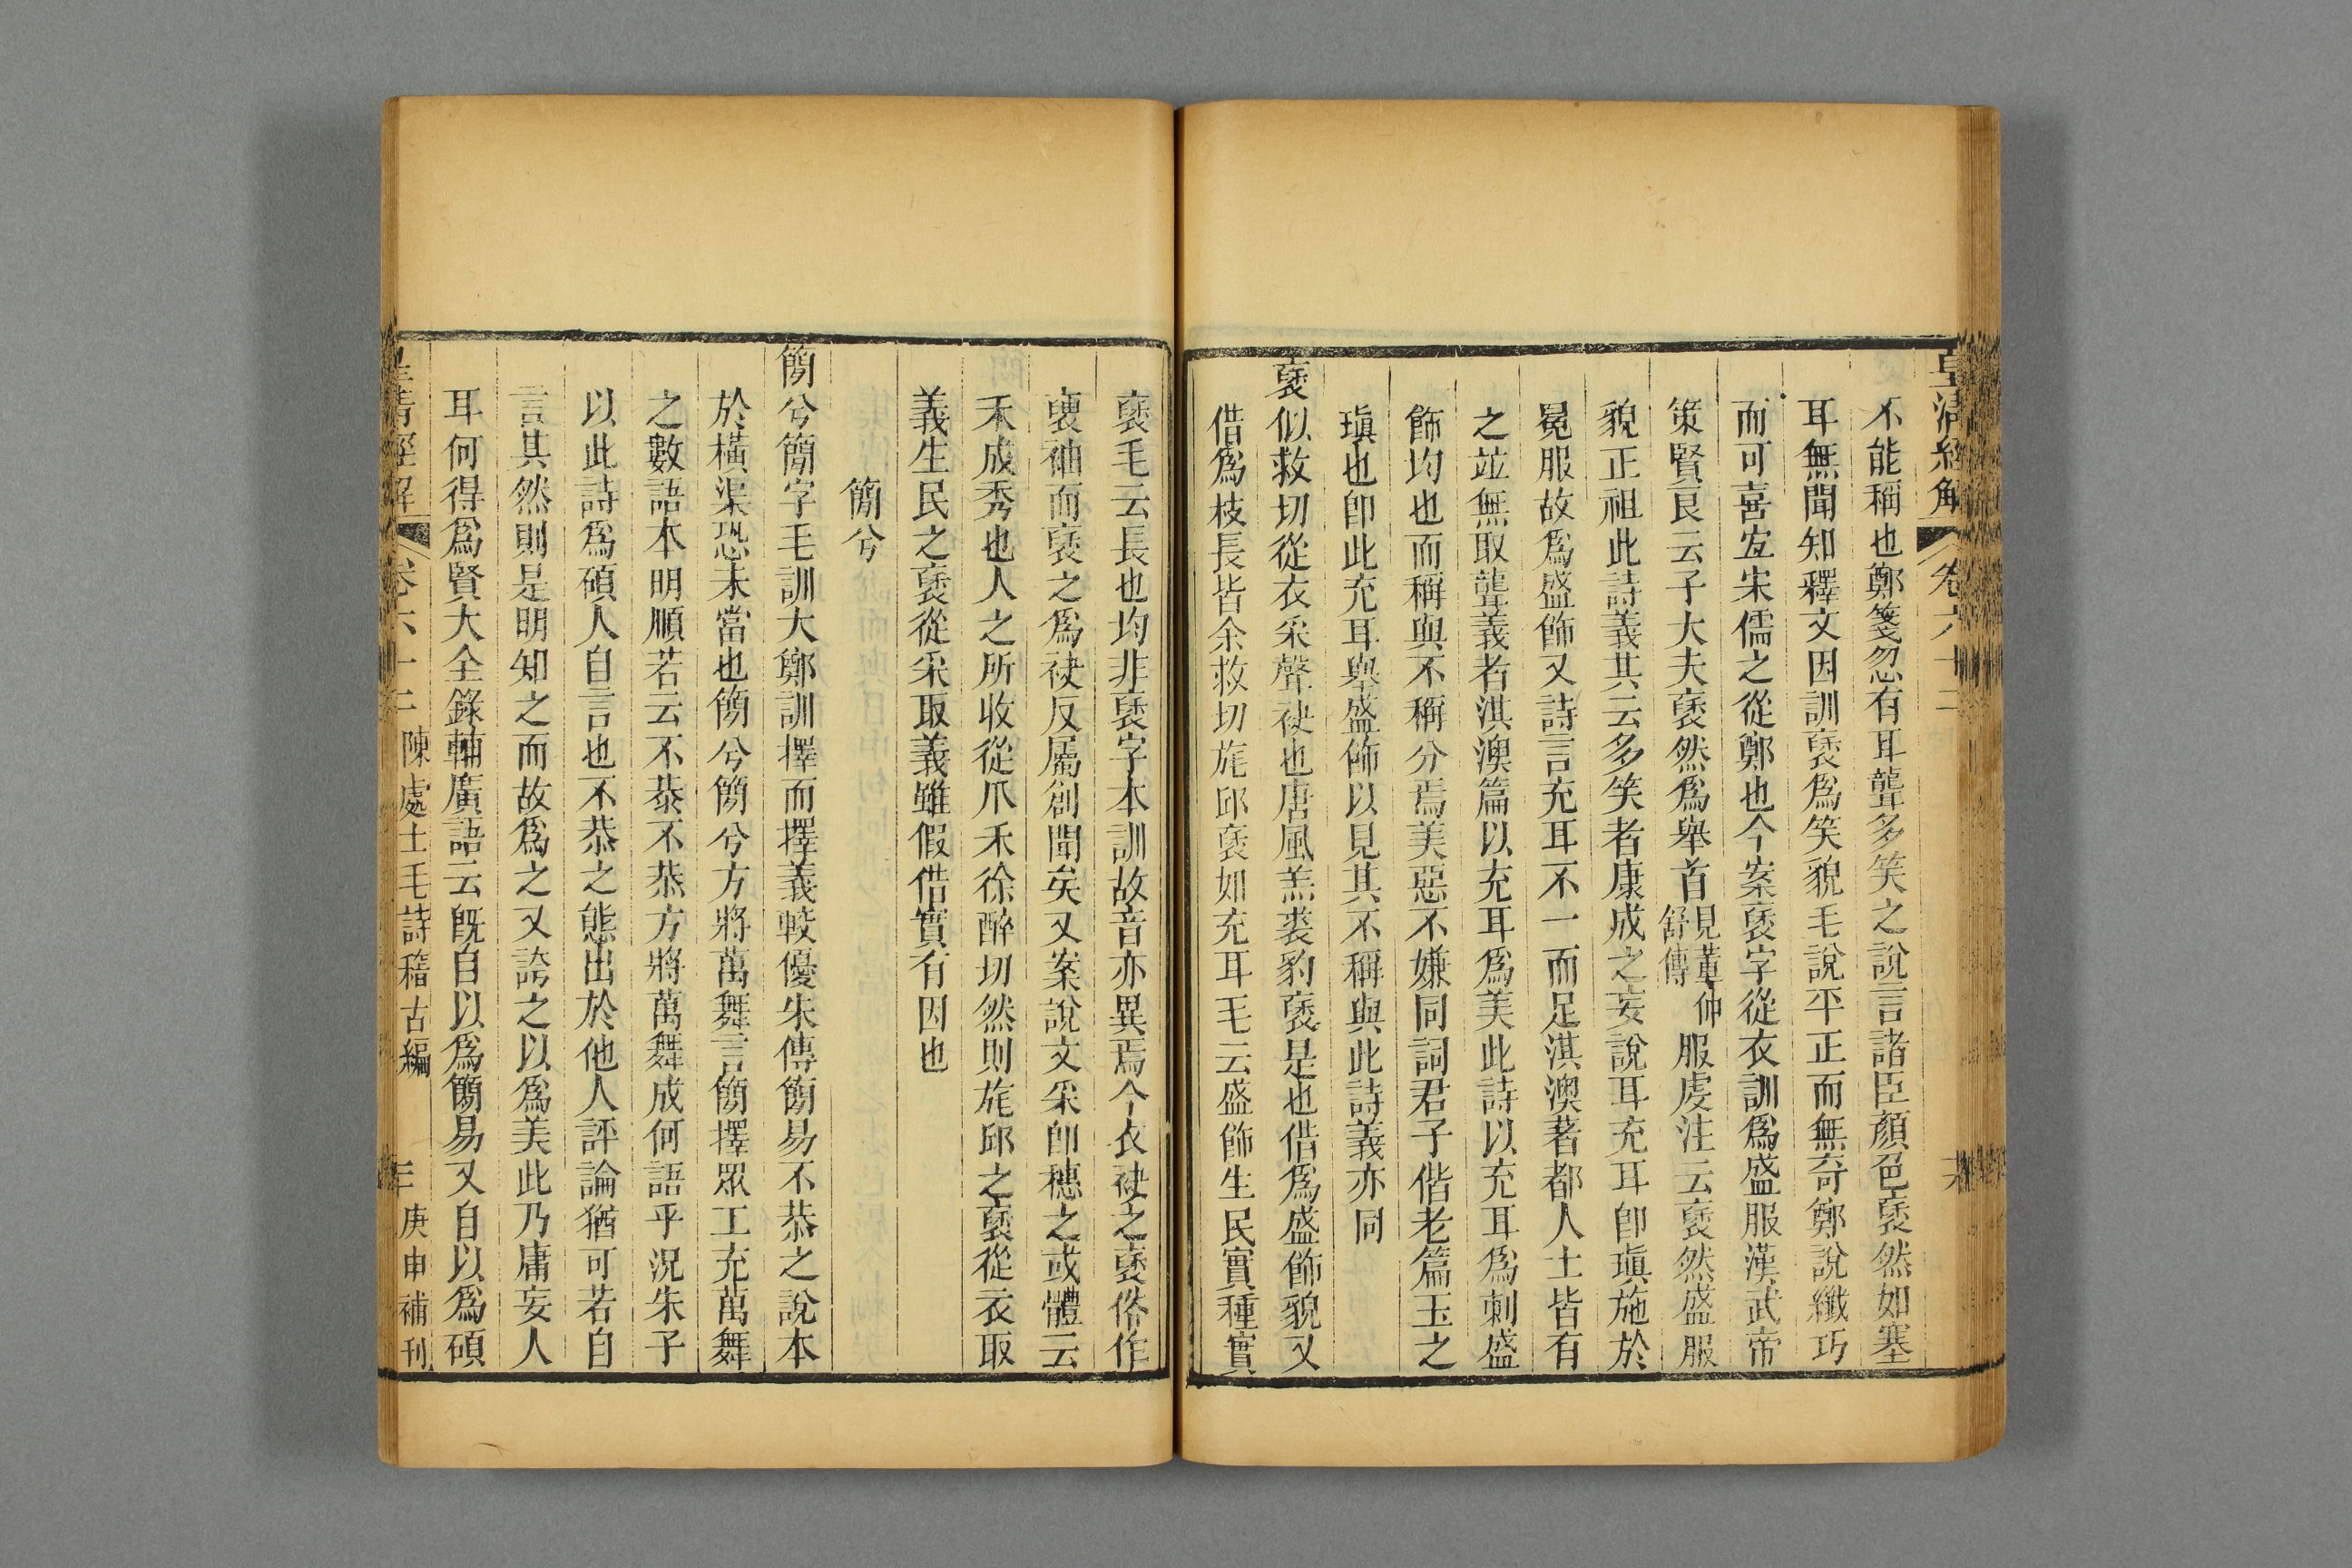 皇清經解
卷六十二
不能稱也鄭箋忽有耳聾多笑之說言諸臣顏色褎然如塞
耳無聞知釋文因訓褎爲笑貌毛說平正而無奇鄭說纖巧
而可喜宐宋儒之從鄭也今案褎字從衣訓爲盛服漢武帝
策賢良云子大夫褎然爲舉首見董仲舒傳服虔注云褎然盛服
貌正祖此詩義其云多笑者康成之妄說耳充耳卽瑱施於
冕服故爲盛飾又詩言充耳不一而足淇澳著都人士皆有
之竝無取聾義者淇澳篇以充耳爲美此詩以充耳爲刺盛
飾均也而稱與不稱分焉美惡不嫌同詞君子偕老篇玉之
瑱也卽此充耳舉盛飾以見其不稱與此詩義亦同
褎似救切從衣采聲袂也唐風羔裘豹褎是也借爲盛飾貌又
借爲枝長皆余救切旄邱褎如充耳毛云盛飾生民實種實
褎毛云長也均非褎字本訓故音亦異焉今衣袂之褎俗作
褏袖而褎之爲袂反屬創聞矣又案說文采卽穗之或體云
禾成秀也人之所收從爪禾徐醉切然則旄邱之褎從衣取
義生民之褎從采取義雖假借實有因也
簡兮
簡兮簡字毛訓大鄭訓擇而擇義較優朱傳簡易不恭之說本
於橫渠恐未當也簡兮簡兮方將萬舞言簡擇眾工充萬舞
之數語本明順若云不恭不恭方將萬舞成何語乎況朱子
以此詩爲碩人自言也不恭之態出於他人評論猶可若自
言其然則是明知之而故爲之又誇之以爲美此乃庸妄人
耳何得爲賢大全錄輔廣語云旣自以爲簡易又自以爲碩
皇清經解
卷六十二
陳處士毛詩稽古編
庚申補刊